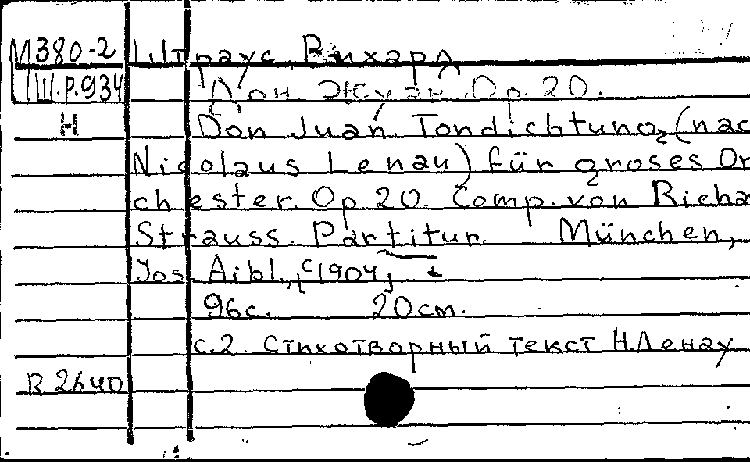 М380-2 Штраус, Рихард
Ш.Р.934 Дон Жуан. Op. 20.
Н Don Juan. Tondichtung (nac
Nicolaus Lenau) für groses Or
chester. Op 20. Comp. von Richa
Strauss. Partitur. München,
Jos. Aibl., [c1904]
96с. 20см.
с.2. Стихотворный текст Н.Ленау
В 2640